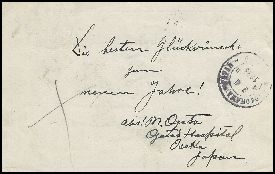 Die besten Glückwünsche
zum
neuen Jahre!
abs: M. Ogata
Ogata Hospital
Osaka
Japan